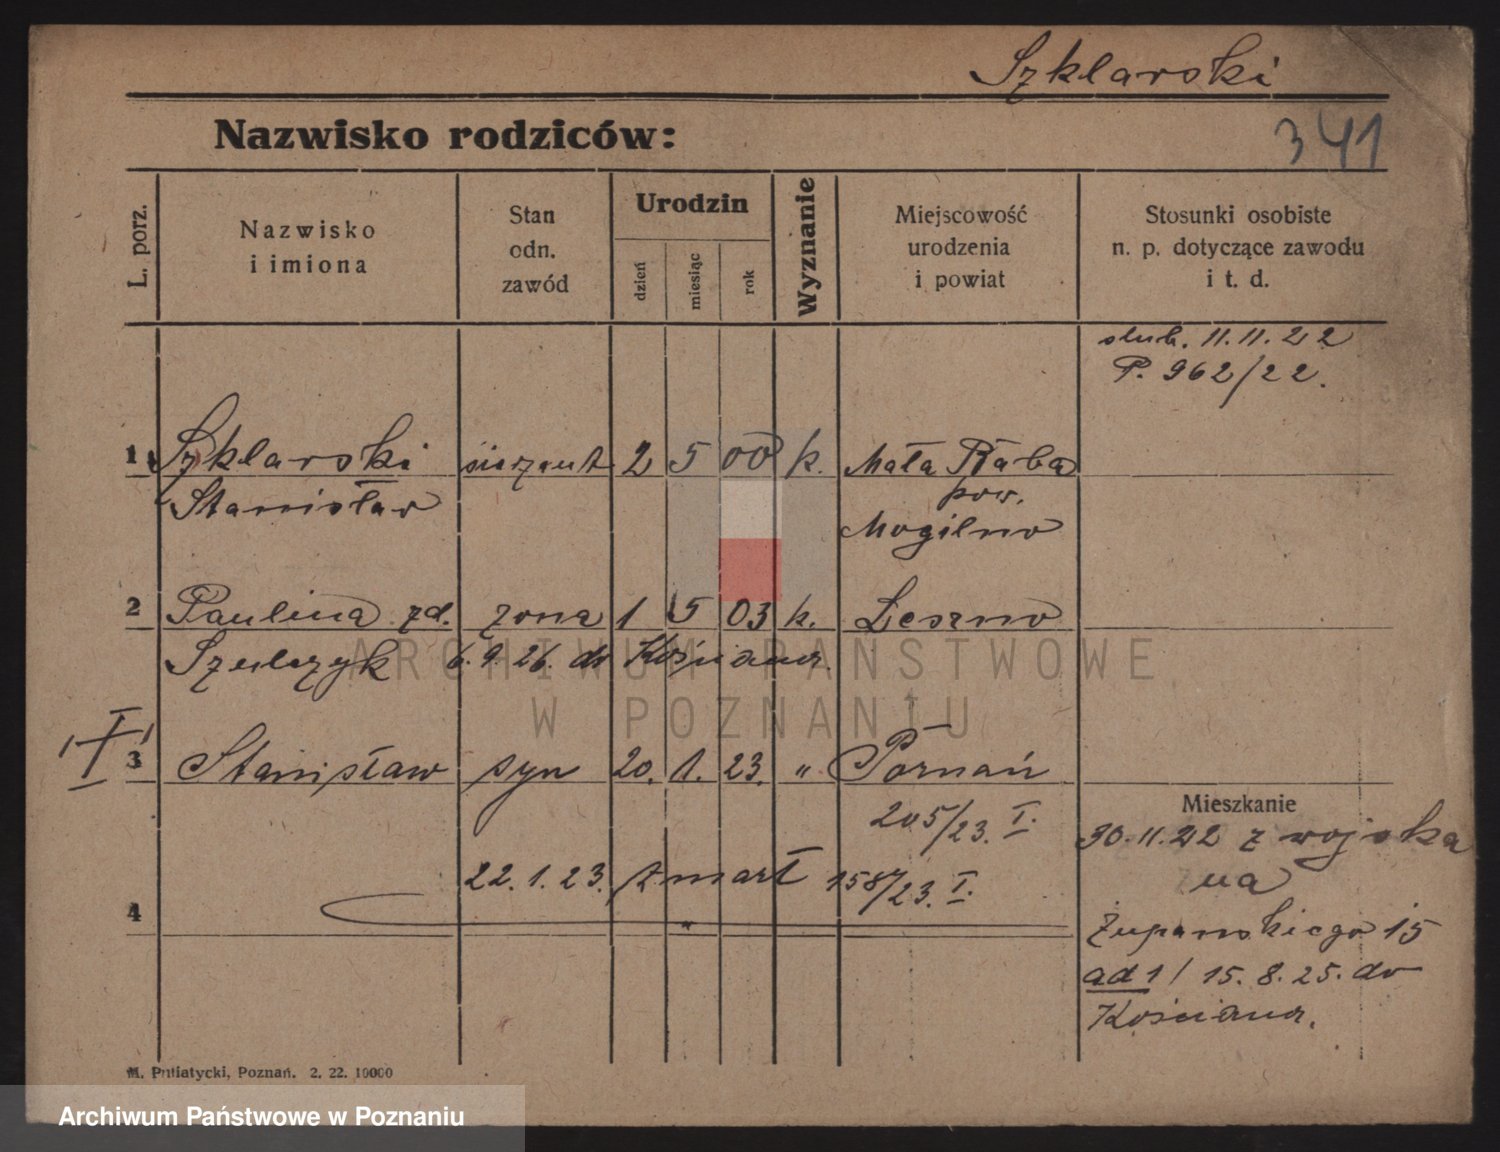 Szklarski
341
Nazwisko rodziców:
L. porz.
Nazwisko
i imiona
Stan
odn.
zawód
Urodzin
dzień
miesiąc
rok
Wyznanie
Miejscowość
urodzenia
i powiat
Stosunki osobiste
n. p. dotyczące zawodu
i t. d.
ślub. 11.11.22
P. 962/22.
1 Szklarski sierżant 2 5 00 k. Mała Rłaba
Stanisław pow.
Mogilno
2 Paulina zd. żona 1 5 03 k. Leszno
Szulczyk 6.9.26. do Kościana.
ARCHIWUM PAŃSTWOWE
W POZNANIU
3 Stanisław syn 20. 1. 23. " Poznań
205/23. I.
22.1.23. zmarł 1587/23. I.
4
Mieszkanie
30.11.22 z wojska
na
Żupańskiego 15
ad 1/ 15.8.25. do
Kościana.
M. Putiatycki, Poznań. 2. 22. 10000
Archiwum Państwowe w Poznaniu